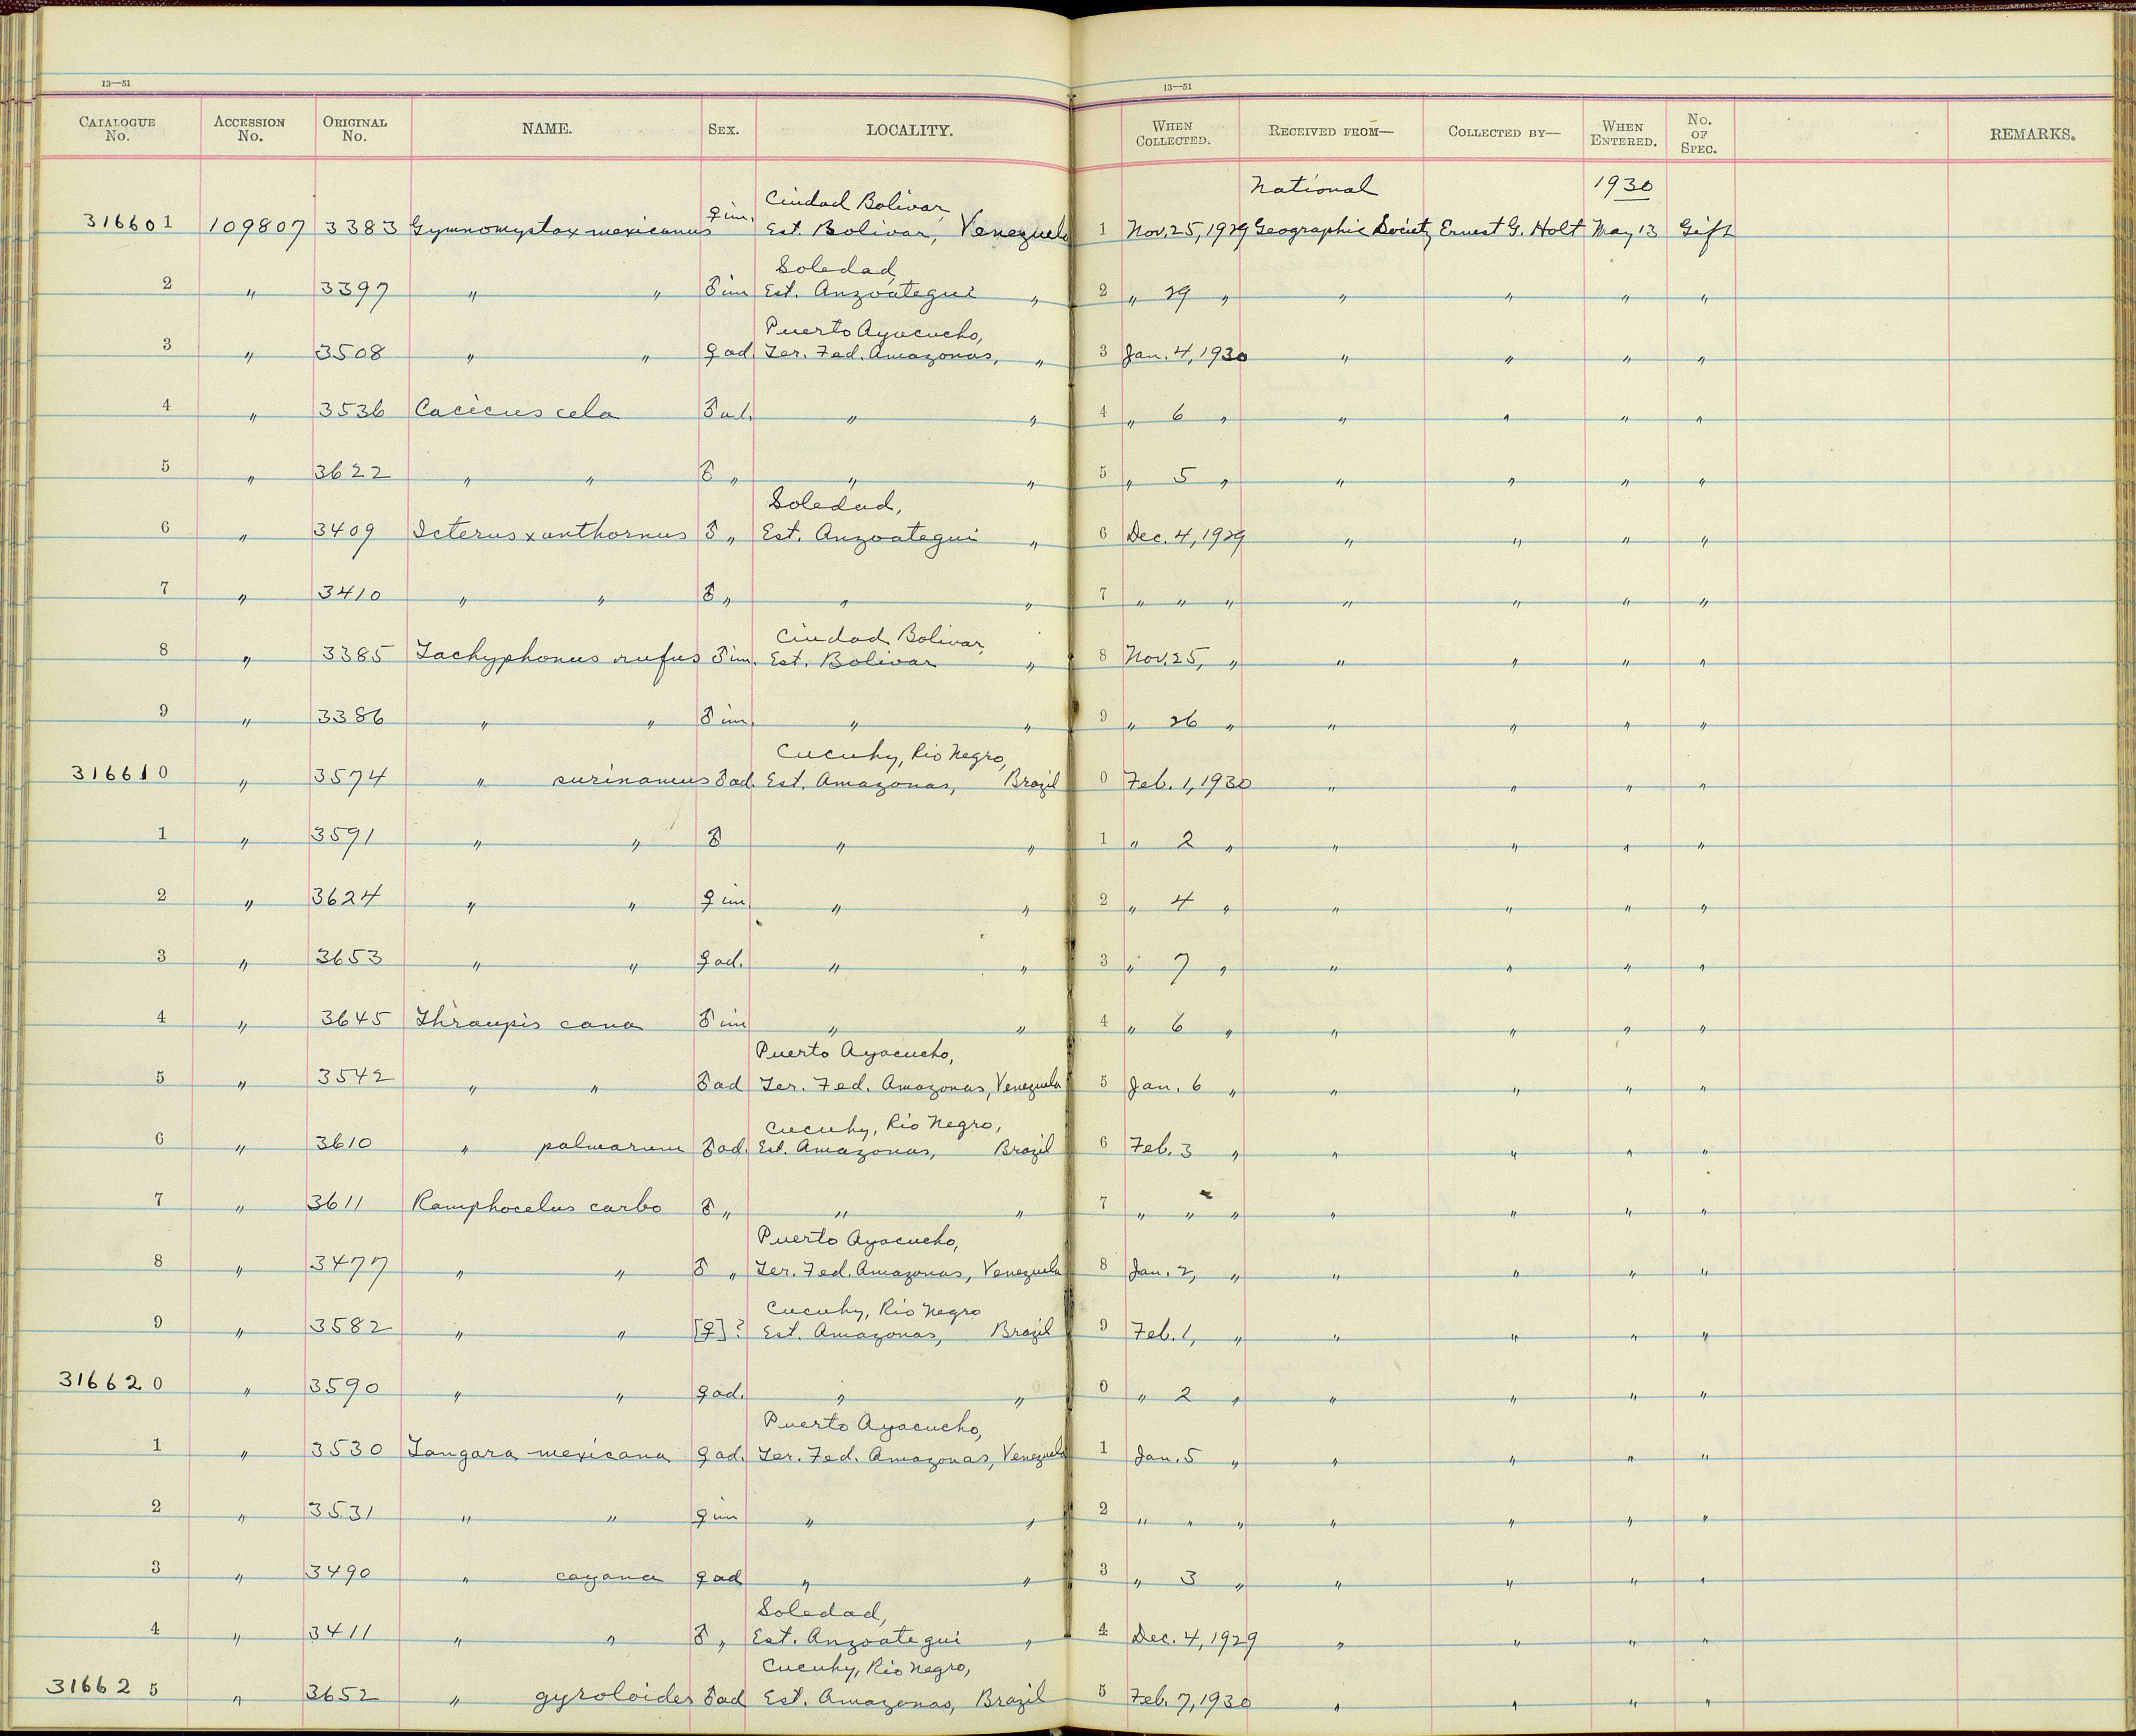 13—51 13—51
CATALOGUE No. ACCESSION No. ORIGINAL No. NAME. SEX. LOCALITY. WHEN COLLECTED. RECEIVED FROM— COLLECTED BY— WHEN ENTERED. No. OF SPEC. REMARKS.
Ciudad Bolivar, National 1930
316601 109807 3383 Gymnomystax mexicanus ♀ im. Est. Bolivar, Venezuela 1 Nov. 25, 1929 Geographic Society Ernest G. Holt May 13 Gift
Soledad,
2 " 3397 " " ♂ im Est. Anzoategui " 2 " 29 " " " " "
Puerto Ayacucho,
3 " 3508 " " ♀ ad. Ter. Fed. Amazonas, " 3 Jan. 4, 1930 " " " "
4 " 3536 Cacicus cela ♂ ad. " " 4 " 6 " " " " "
5 " 3622 " " ♂ " " " 5 " 5 " " " " "
Soledad,
6 " 3409 Icterus xanthornus ♂ " Est. Anzoategui " 6 Dec. 4, 1929 " " " "
7 " 3410 " " ♂ " " " 7 " " " " " " "
Ciudad Bolivar,
8 " 3385 Tachyphonus rufus ♂ im. Est. Bolivar " 8 Nov. 25, " " " " "
9 " 3386 " " ♂ im. " " 9 " 26 " " " " "
Cucuhy, Rio Negro,
316610 " 3574 " surinamus ♂ ad. Est. Amazonas, Brazil 0 Feb. 1, 1930 " " " "
1 " 3591 " " ♂ " " 1 " 2 " " " " "
2 " 3624 " " ♀ im. " " 2 " 4 " " " " "
3 " 3653 " " ♀ ad. " " 3 " 7 " " " " "
4 " 3645 Thraupis cana ♂ im " " 4 " 6 " " " " "
Puerto Ayacucho,
5 " 3542 " " ♂ ad Ter. Fed. Amazonas, Venezuela 5 Jan. 6 " " " " "
Cucuhy, Rio Negro,
6 " 3610 " palmarum ♂ ad. Est. Amazonas, Brazil 6 Feb. 3 " " " " "
7 " 3611 Ramphocelus carbo ♂ " " " 7 " " " " " " "
Puerto Ayacucho,
8 " 3477 " " ♂ " Ter. Fed. Amazonas, Venezuela 8 Jan. 2, " " " " "
Cucuhy, Rio Negro
9 " 3582 " " [♀]? Est. Amazonas, Brazil 9 Feb. 1, " " " " "
316620 " 3590 " " ♀ ad. " " 0 " 2 " " " " "
Puerto Ayacucho,
1 " 3530 Tangara mexicana ♀ ad. Ter. Fed. Amazonas, Venezuela 1 Jan. 5 " " " " "
2 " 3531 " " ♀ im " " 2 " " " " " " "
3 " 3490 " cayana ♀ ad " " 3 " 3 " " " " "
Soledad,
4 " 3411 " " ♂ " Est. Anzoategui " 4 Dec. 4, 1929 " " " "
Cucuhy, Rio Negro,
316625 " 3652 " gyroloides ♂ ad Est. Amazonas, Brazil 5 Feb. 7, 1930 " " " "